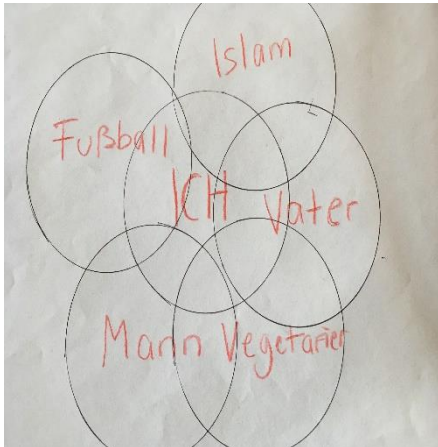 Islam
Fußball
ICH
Vater
Mann
Vegetarier